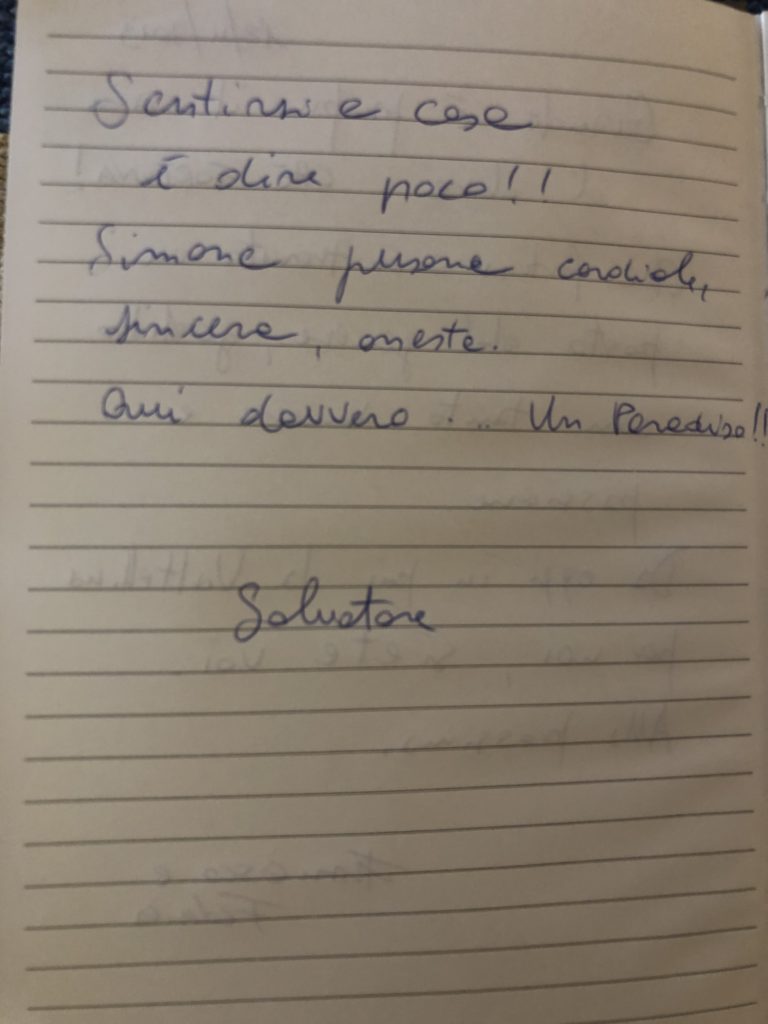 Sentirsi a casa
è dire poco!!
Simone persona cordiale,
sincera, onesta.
Qui davvero... Un Paradiso!!
Salvatore